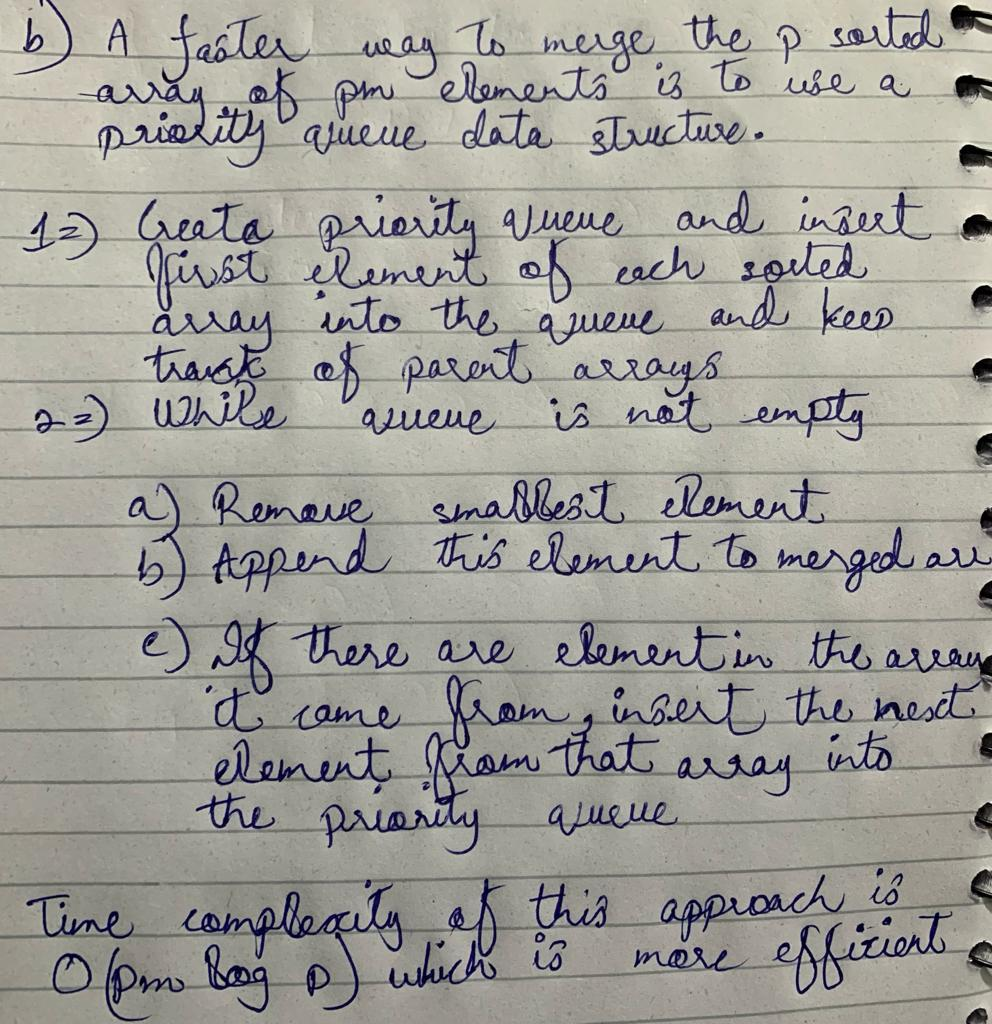 b) A faster way to merge the p sorted
array of pm elements is to use a
priority queue data structure.
1=) Creata priority queue and insert
first element of each sorted
array into the queue and keep
track of parent arrays
2=) While queue is not empty
a) Remove smallest element
b) Append this element to merged arr
c) If there are element in the array
it came from, insert the next
element from that array into
the priority queue
Time complexity of this approach is
O(pm log p) which is more efficient